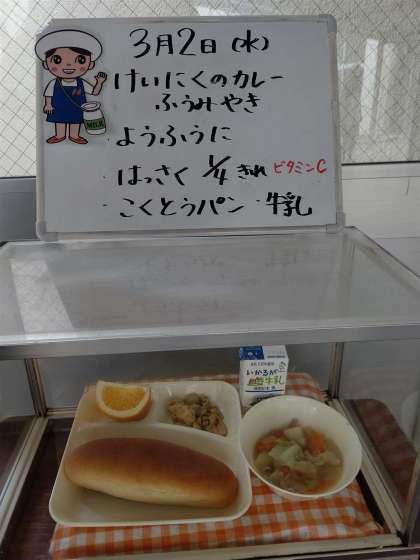 3月2日(水)
けいにくのカレー
ふうみやき
・ようふうに
・はっさく 1/4きれ ビタミンC
・こくとうパン ・牛乳
MILK
いかるが
牛乳